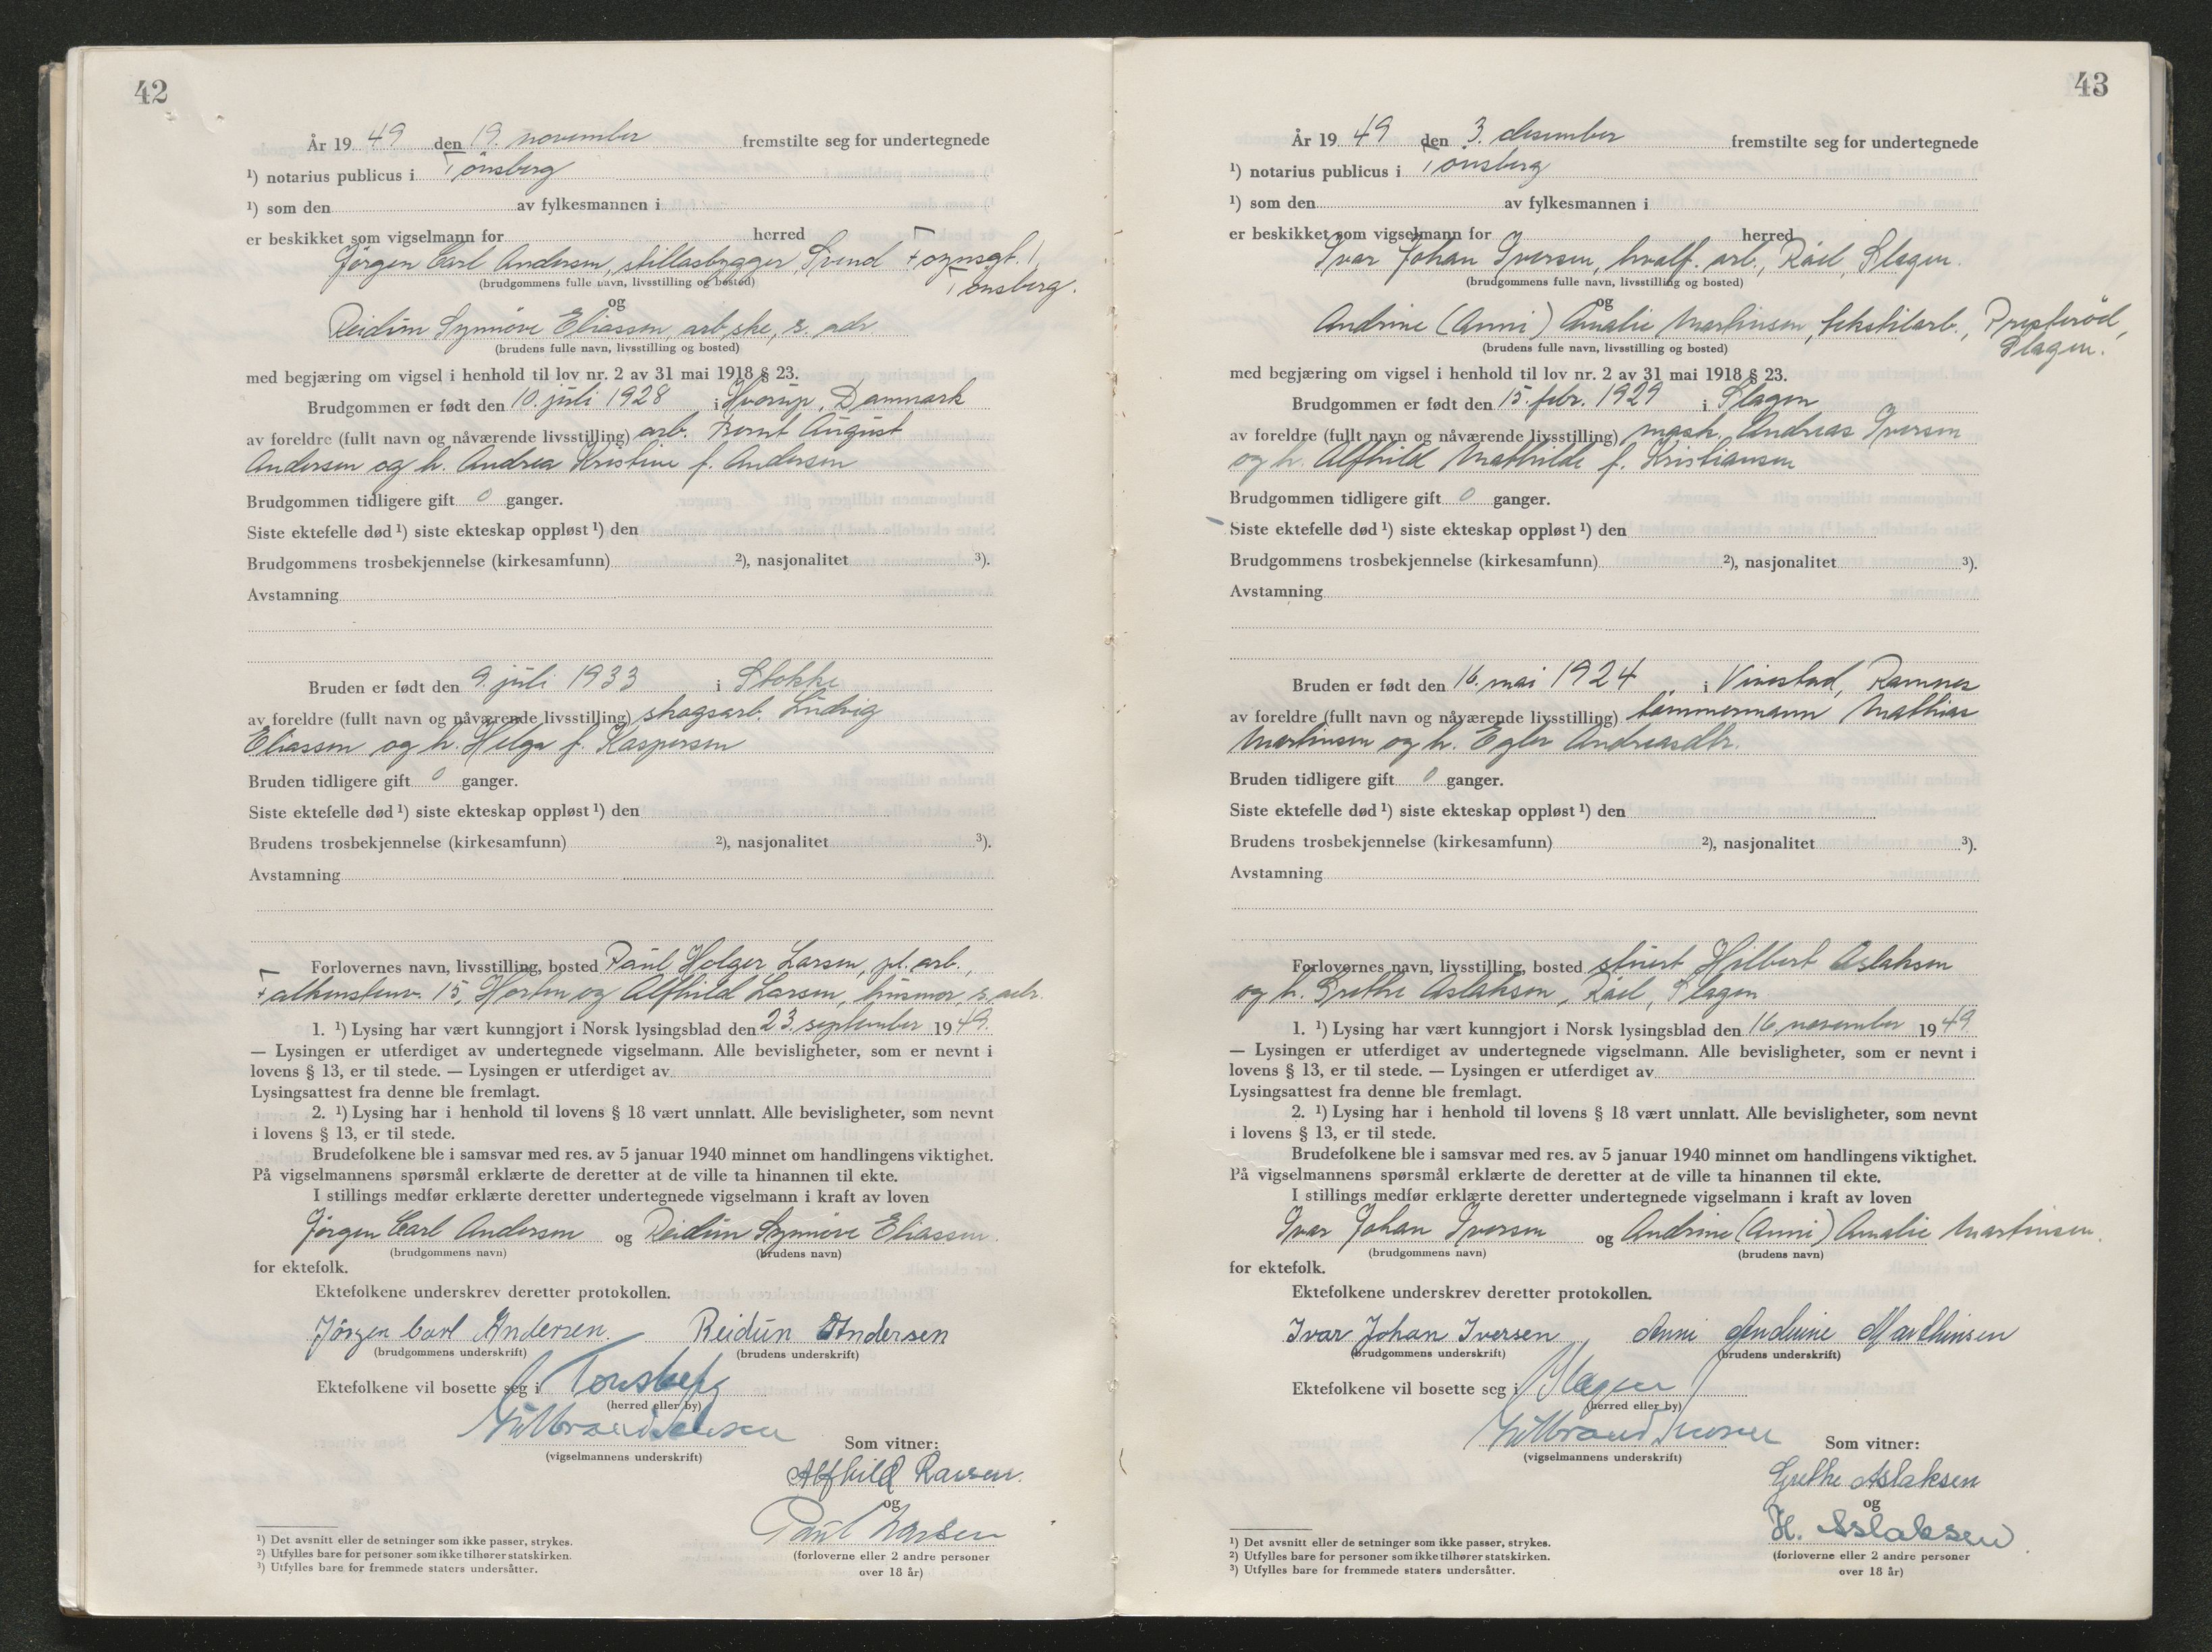 42
År 19 49 den 19. november fremstilte seg for undertegnede
¹) notarius publicus i Tönsberg
¹) som den av fylkesmannen i
er beskikket som vigselmann for herred
Jörgen Carl Andersen, stillasbygger, Svend Foynsgt. 1,
(brudgommens fulle navn, livsstilling og bosted)
Tönsberg.
og
Reidun Synnöve Eliassen, arb.ske, s. adr.
(brudens fulle navn, livsstilling og bosted)
med begjæring om vigsel i henhold til lov nr. 2 av 31 mai 1918 § 23.
Brudgommen er født den 10. juli 1928 i Hvorup, Danmark
av foreldre (fullt navn og nåværende livsstilling) arb. Bernt August
Andersen og h. Andrea Kristine f. Andersen
Brudgommen tidligere gift 0 ganger.
Siste ektefelle død ¹) siste ekteskap oppløst ¹) den
Brudgommens trosbekjennelse (kirkesamfunn) ²), nasjonalitet ³).
Avstamning
Bruden er født den 9. juli 1933 i Stokke
av foreldre (fullt navn og nåværende livsstilling) skogsarb. Ludvig
Eliassen og h. Helga f. Kaspersen
Bruden tidligere gift 0 ganger.
Siste ektefelle død ¹) siste ekteskap oppløst ¹) den
Brudens trosbekjennelse (kirkesamfunn) ²), nasjonalitet ³).
Avstamning
Forlovernes navn, livsstilling, bosted Paul Holger Larsen, pl. arb.,
Falkenstenv. 15, Horten og Alfhild Larsen, husmor, s. adr.
1. ¹) Lysing har vært kunngjort i Norsk lysingsblad den 23. september 19 49.
— Lysingen er utferdiget av undertegnede vigselmann. Alle bevisligheter, som er nevnt i
lovens § 13, er til stede. — Lysingen er utferdiget av
Lysingsattest fra denne ble fremlagt.
2. ¹) Lysing har i henhold til lovens § 18 vært unnlatt. Alle bevisligheter, som nevnt
i lovens § 13, er til stede.
Brudefolkene ble i samsvar med res. av 5 januar 1940 minnet om handlingens viktighet.
På vigselmannens spørsmål erklærte de deretter at de ville ta hinannen til ekte.
I stillings medfør erklærte deretter undertegnede vigselmann i kraft av loven
Jörgen Carl Andersen og Reidun Synnöve Eliassen.
(brudgommens navn) (brudens navn)
for ektefolk.
Ektefolkene underskrev deretter protokollen.
Jörgen Carl Andersen. Reidun Andersen
(brudgommens underskrift) (brudens underskrift)
Ektefolkene vil bosette seg i Tönsberg
(herred eller by)
(vigselmannens underskrift)
Som vitner:
Alfhild Larsen.
og
Paul Larsen
(forloverne eller 2 andre personer
over 18 år)
¹) Det avsnitt eller de setninger som ikke passer, strykes.
²) Utfylles bare for personer som ikke tilhører statskirken.
³) Utfylles bare for fremmede staters undersåtter.
43
År 19 49 den 3. desember fremstilte seg for undertegnede
¹) notarius publicus i Tönsberg
¹) som den av fylkesmannen i
er beskikket som vigselmann for herred
Ivar Johan Iversen, hvalf. arb., Råel, Slagen.
(brudgommens fulle navn, livsstilling og bosted)
og
Andrine (Anni) Amalie Martinsen, tekstilarb., Presteröd,
Slagen.
(brudens fulle navn, livsstilling og bosted)
med begjæring om vigsel i henhold til lov nr. 2 av 31 mai 1918 § 23.
Brudgommen er født den 15. febr. 1929 i Slagen
av foreldre (fullt navn og nåværende livsstilling) mask. Andreas Iversen
og h. Alfhild Mathilde f. Kristiansen
Brudgommen tidligere gift 0 ganger.
Siste ektefelle død ¹) siste ekteskap oppløst ¹) den
Brudgommens trosbekjennelse (kirkesamfunn) ²), nasjonalitet ³).
Avstamning
Bruden er født den 16. mai 1924 i Vivestad, Ramnes
av foreldre (fullt navn og nåværende livsstilling) tömmermann Mathias
Martinsen og h. Egler Andreasdtr.
Bruden tidligere gift 0 ganger.
Siste ektefelle død ¹) siste ekteskap oppløst ¹) den
Brudens trosbekjennelse (kirkesamfunn) ²), nasjonalitet ³).
Avstamning
Forlovernes navn, livsstilling, bosted stuert Hilbert Aslaksen
og h. Grethe Aslaksen, Råel, Slagen
1. ¹) Lysing har vært kunngjort i Norsk lysingsblad den 16. november 19 49
— Lysingen er utferdiget av undertegnede vigselmann. Alle bevisligheter, som er nevnt i
lovens § 13, er til stede. — Lysingen er utferdiget av
Lysingsattest fra denne ble fremlagt.
2. ¹) Lysing har i henhold til lovens § 18 vært unnlatt. Alle bevisligheter, som nevnt
i lovens § 13, er til stede.
Brudefolkene ble i samsvar med res. av 5 januar 1940 minnet om handlingens viktighet.
På vigselmannens spørsmål erklærte de deretter at de ville ta hinannen til ekte.
I stillings medfør erklærte deretter undertegnede vigselmann i kraft av loven
Ivar Johan Iversen og Andrine (Anni) Amalie Martinsen.
(brudgommens navn) (brudens navn)
for ektefolk.
Ektefolkene underskrev deretter protokollen.
Ivar Johan Iversen, Anni Andrine Marthinsen
(brudgommens underskrift) (brudens underskrift)
Ektefolkene vil bosette seg i Slagen
(herred eller by)
(vigselmannens underskrift)
Som vitner:
Grethe Aslaksen
og
H. Aslaksen
(forloverne eller 2 andre personer
over 18 år)
¹) Det avsnitt eller de setninger som ikke passer, strykes.
²) Utfylles bare for personer som ikke tilhører statskirken.
³) Utfylles bare for fremmede staters undersåtter.